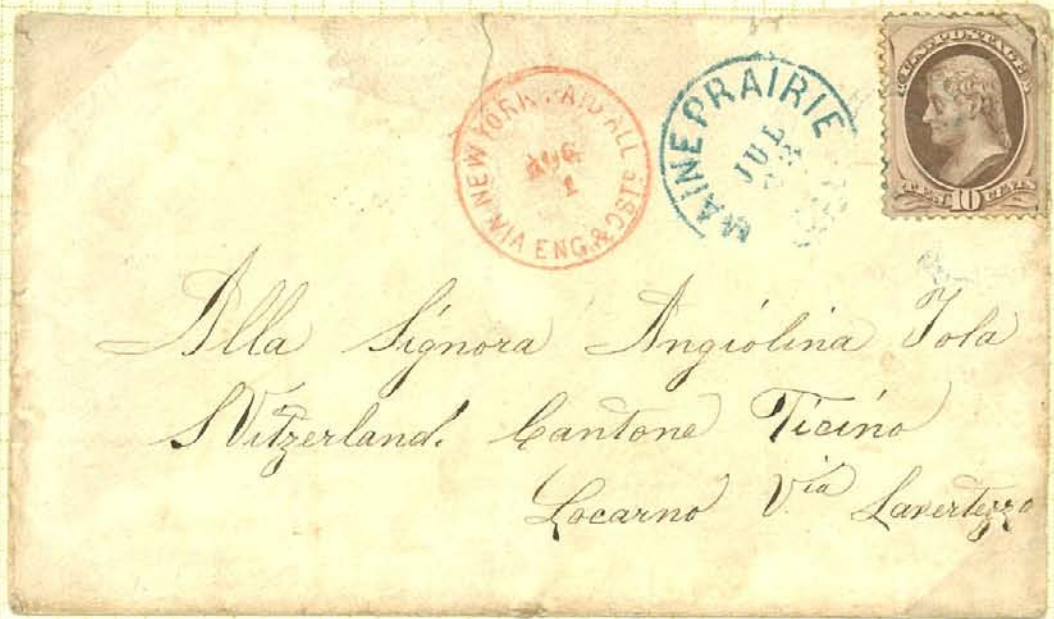 NEW YORK PAID ALL
AUG
1
VIA ENG. & OST.
MAINE PRAIRIE
JUL
23
U.S. POSTAGE
TEN 10 CENTS
Alla Signora Angiolina Tola
SVitzerland. Cantone Ticino
Locarno Via Lavertezzo